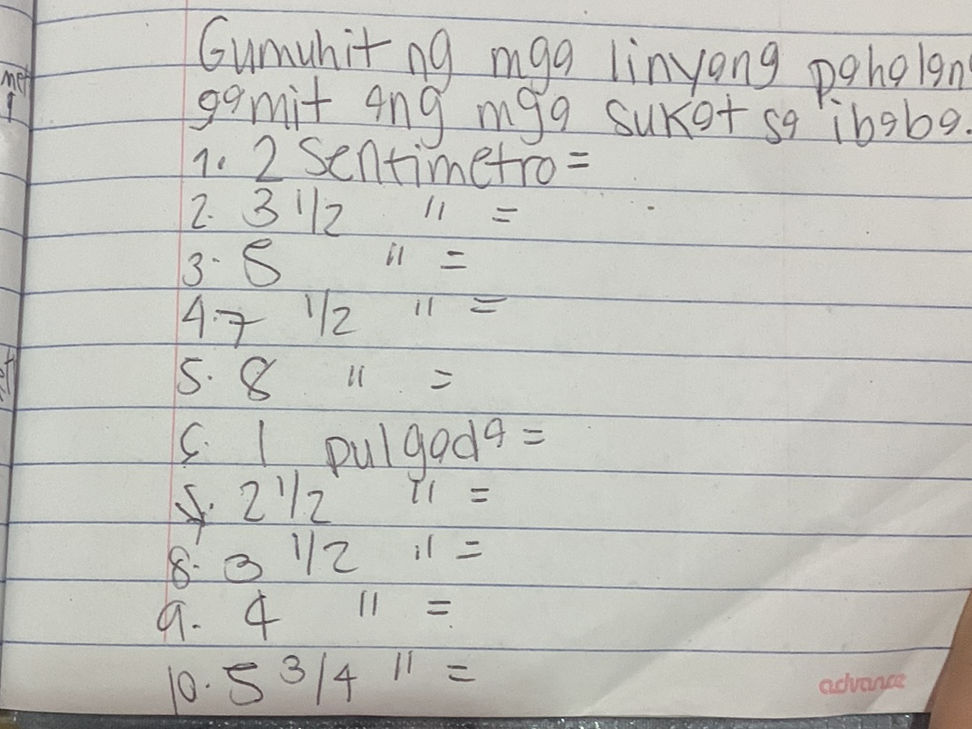 Gumuhit ng mga linyang pahalan
gamit ang mga sukat sa ibaba.
1. 2 sentimetro =
2. 3 1/2 " =
3. 5 " =
4. 7 1/2 " =
5. 8 " =
6. 1 pulgada =
7. 2 1/2 " =
8. 3 1/2 " =
9. 4 " =
10. 5 3/4 " =
advance